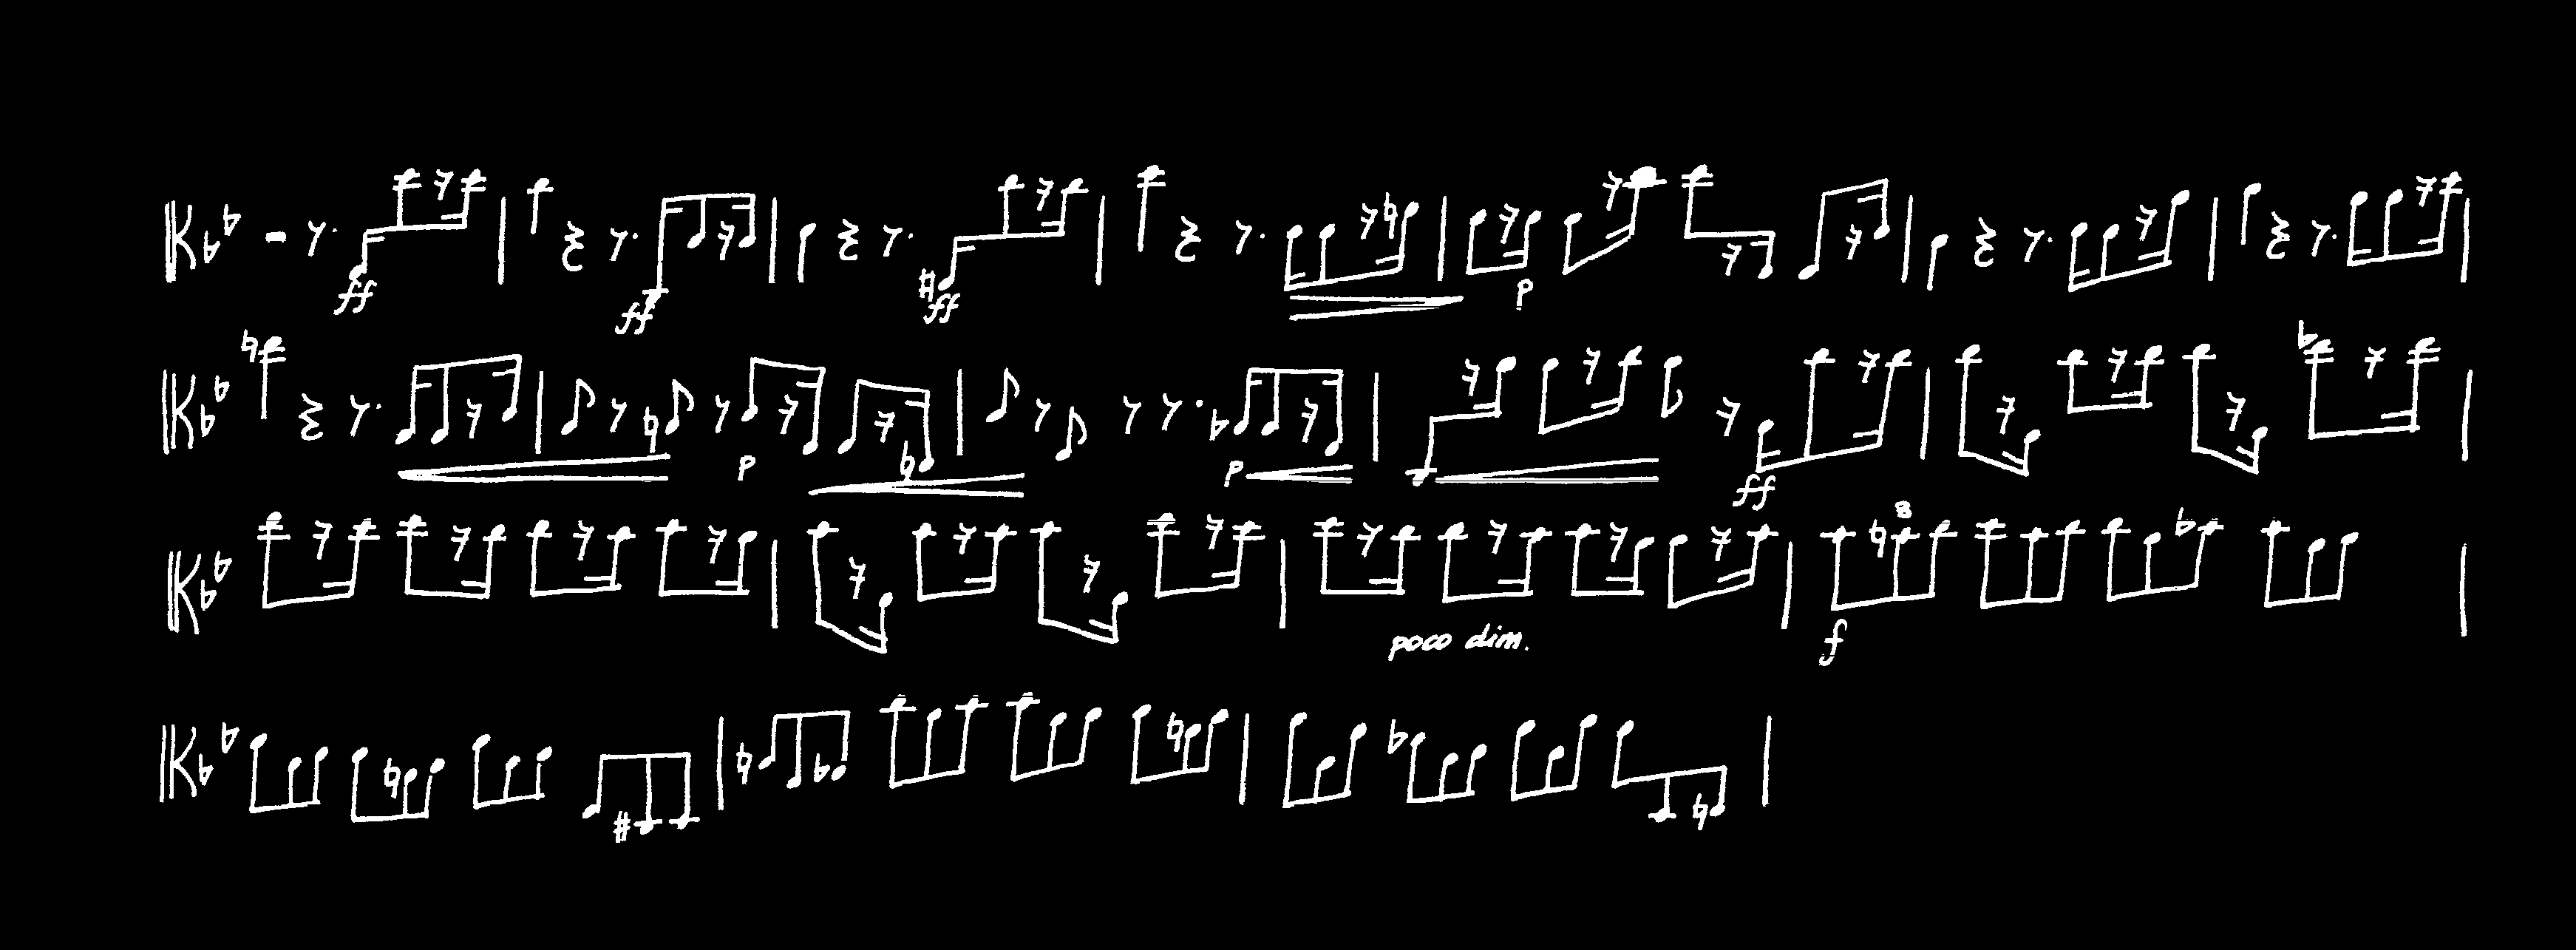 ff ff ff p
p p ff
poco dim. f 3